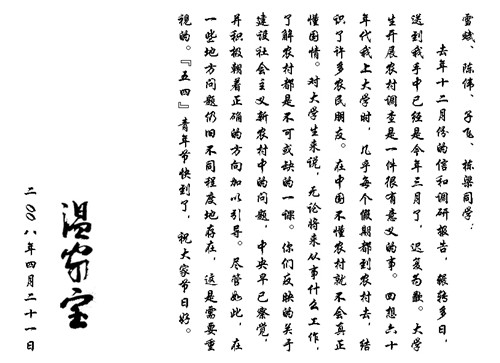 雪斌、陈伟、子飞、栋梁同学：
去年十二月份的信和调研报告，辗转多日，
送到我手中已经是今年三月了，迟复为歉。大学
生开展农村调查是一件很有意义的事。回想六十
年代我上大学时，几乎每个假期都到农村去，结
识了许多农民朋友。在中国不懂农村就不会真正
懂国情。对大学生来说，无论将来从事什么工作，
了解农村都是不可或缺的一课。你们反映的关于
建设社会主义新农村中的问题，中央早已察觉，
并积极朝着正确的方向加以引导。尽管如此，在
一些地方问题仍旧不同程度地存在，这是需要重
视的。『五四』青年节快到了，祝大家节日好。
温家宝
二〇〇八年四月二十一日